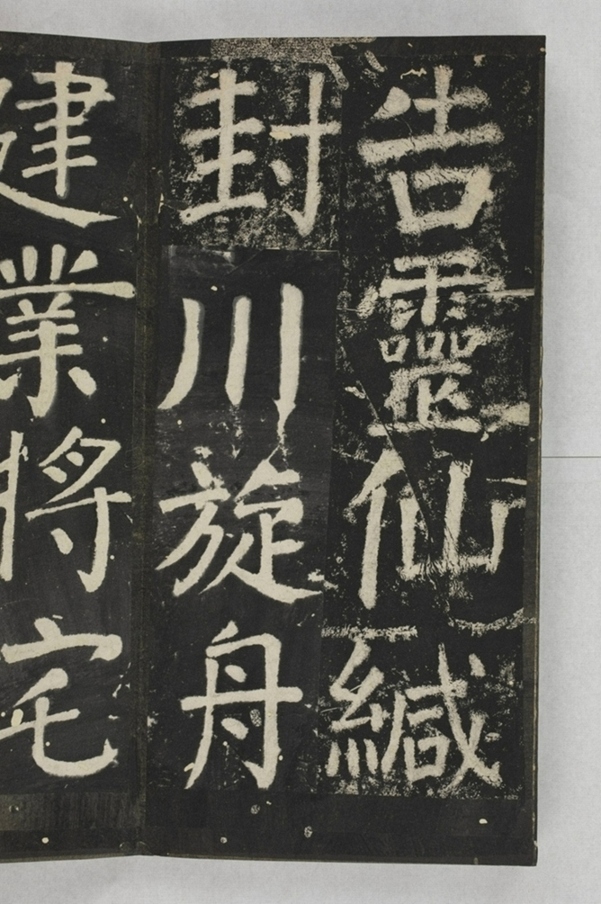 告靈仙緘
封川旋舟
建業將宅